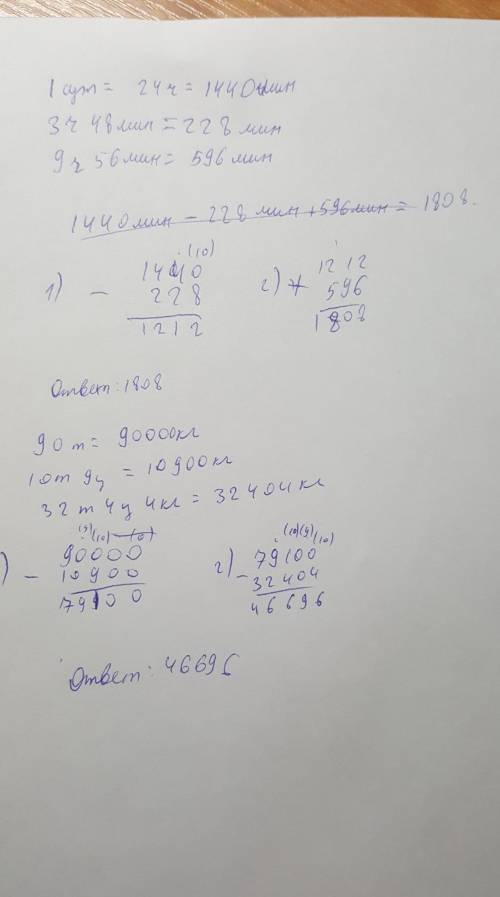 1 сут = 24ч = 1440мин
3ч 48мин = 228 мин
9ч 56мин = 596мин
1440мин - 228 мин + 596мин = 1808.
(10)
1) - 1440
228
1212
2) + 1212
596
1808
Ответ: 1808
90т = 90000кг
10т 9ц = 10900кг
32т 4ц 4кг = 32404кг
(9) (10) (0)
) - 90000
10900
79100
(10)(9)(10)
2) - 79100
32404
46696
Ответ: 46696